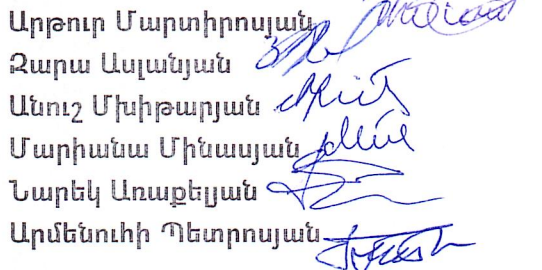 Արթուր Մարտիրոսյան
Զարա Ասլանյան
Անուշ Մխիթարյան
Մարիանա Մինասյան
Նարեկ Առաքելյան
Արմենուհի Պետրոսյան